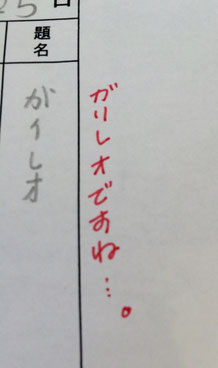 題名
がイしオ
ガリレオですね…。